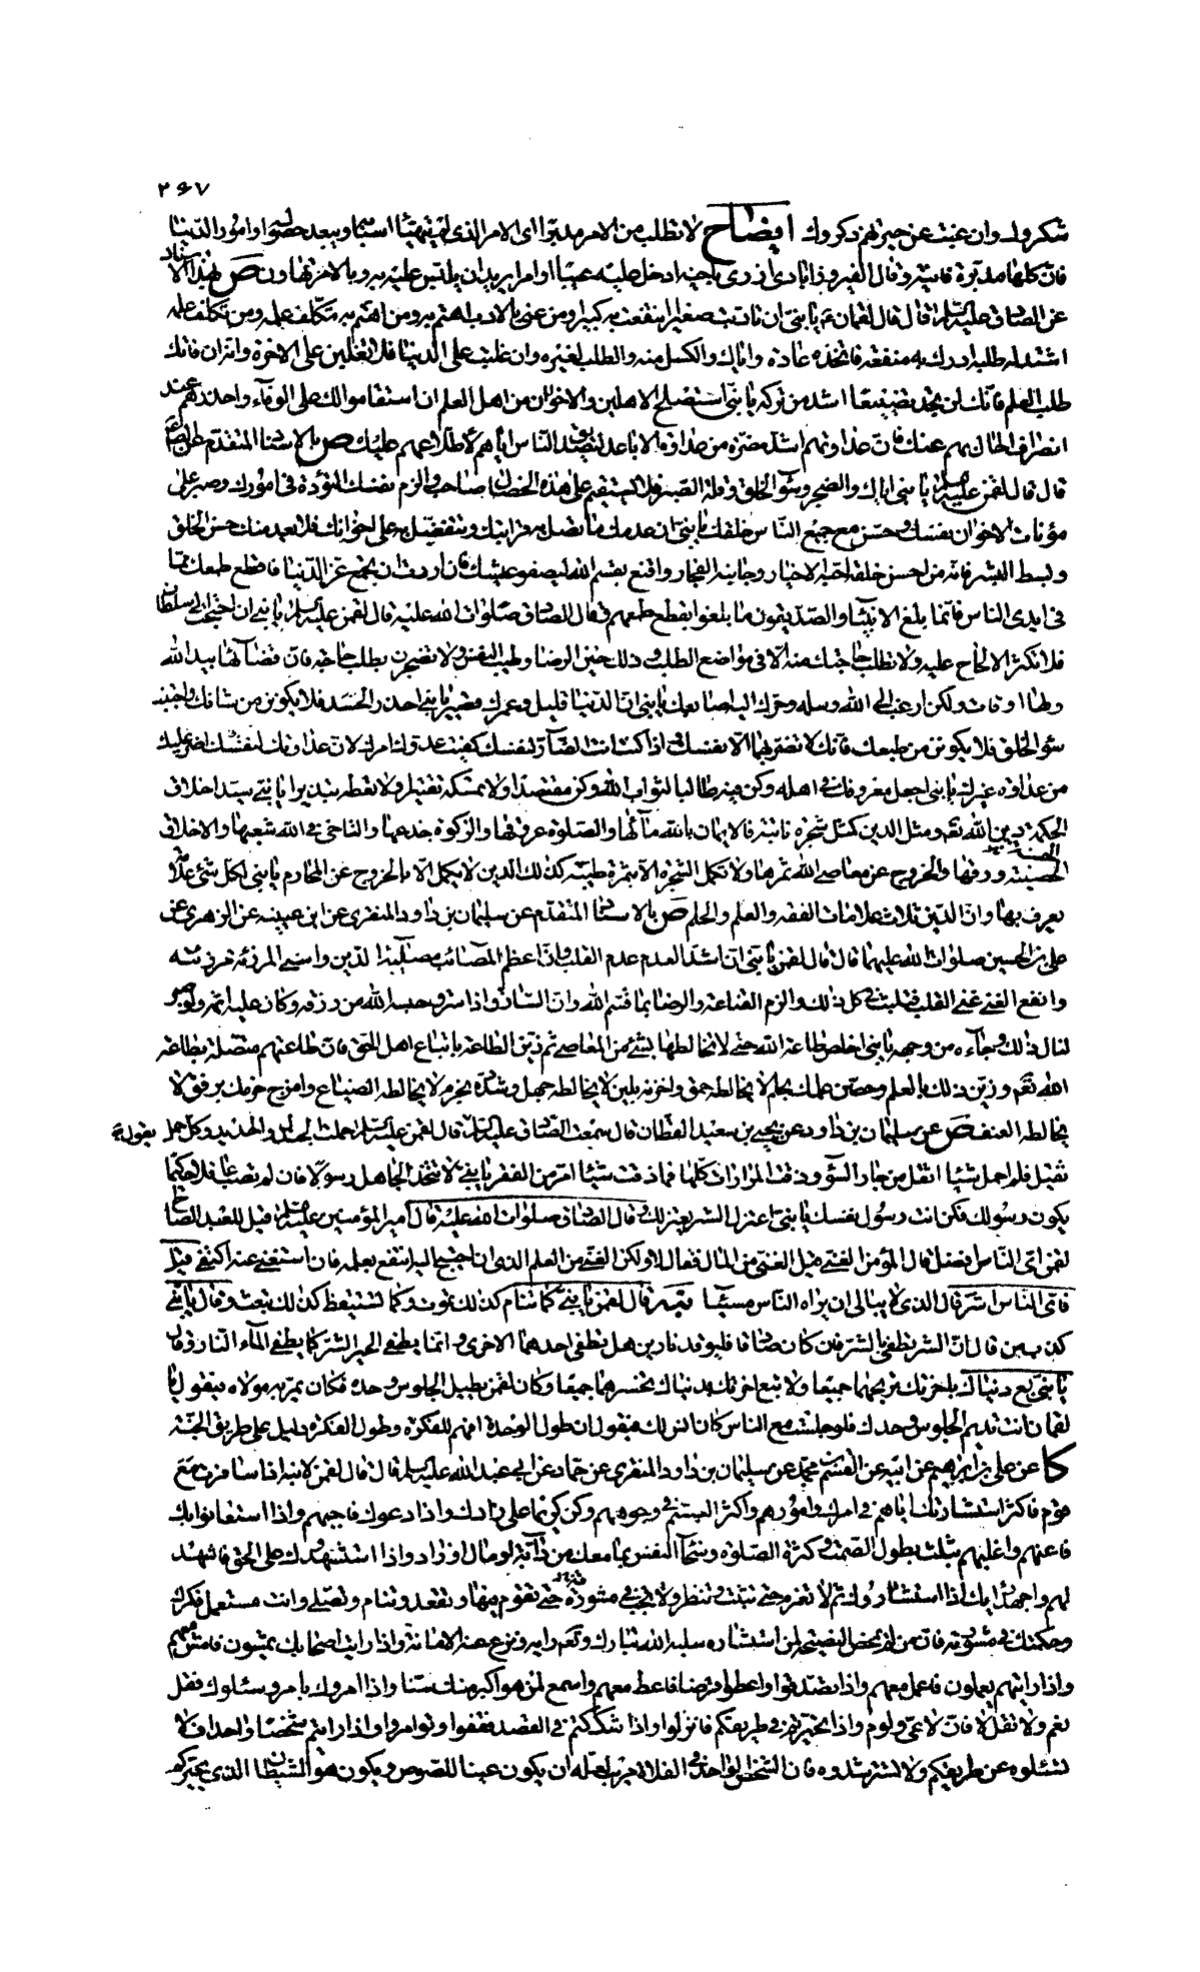 ٢٦٧
شكروك وان غبت عن جيرتهم ذكروك ايضاح لا تطلب من الامر مدبرا اى الامر الذى لم يتهيّأ اسبابه ويبعد حصوله او امور الدنيا
فان كلها مدبرة فانية وقال الفيروزآبادى ازرى باخيه ادخل عليه عيبا او امرا يريد ان يلبّس عليه به وبالامر تهاون ص بهذا الاسناد
عن الصادق عليه السلم قال قال لقمان يا بنىّ ان تادبت صغيرا انتفعت به كبيرا ومن عنى بالادب اهتم به ومن اهتم به تكلف علمه ومن تكلف علمه
اشتد له طلبه ومن اشتد له طلبه ادرك به منفعة فاتخذه عادة واياك والكسل منه والطلب لغيره وان غلبت على الدنيا فلا تغلبن على الاخرة وانه ان فاتك
طلب العلم فانك لن تجد تضييعا اشد من تركه يا بنى استصلح الاهلين والاخوان من اهل العلم ان استقاموا لك على الوفاء واحذرهم عند
انصراف الحال بهم عنك فان عداوتهم اشد مضرة من عداوة الاباعد لتصديق الناس اياهم لاطلاعهم عليك ص بالاسناد المتقدم عن الصادق ع
قال قال لقمن عليه السلم يا بنى اياك والضجر وسوء الخلق وقلة الصبر فلا يستقيم على هذه الخصال صاحب والزم نفسك التؤدة فى امورك وصبر على
مؤنات الاخوان نفسك وحسن مع جميع الناس خلقك يا بنى ان عدمك ما تصل به قرابتك وتتفضل به على اخوانك فلا يعدمنك حسن الخلق
وبسط البشر فانه من احسن خلقه احبه الاخيار وجانبه الفجار واقنع بقسم الله ليصفو عيشك فان اردت ان تجمع عز الدنيا فاقطع طمعك مما
فى ايدى الناس فانما بلغ الانبياء والصديقون ما بلغوا بقطع طمعهم وقال الصادق صلوات الله عليه قال لقمن عليه السلم يا بنى ان احتجت الى سلطان
فلا تكثر الالحاح عليه ولا تطلب حاجتك منه الا فى مواضع الطلب وذلك حين الرضا وطيب النفس ولا تضجرن بطلب حاجة فان قضاءها بيد الله
ولها اوقات ولكن ارغب الى الله وسله وحرك اليه اصابعك يا بنى ان الدنيا قليل وعمرك قصير يا بنى احذر الحسد فلا يكونن من شانك واجتنب
سوء الخلق فلا يكونن من طبعك فانك لا تضر بهما الا نفسك واذا كنت انت الضار لنفسك كفيت عدوك امرك لان عداوتك لنفسك اضر عليك
من عداوة غيرك يا بنى اجعل معروفك فى اهله وكن فيه طالبا لثواب الله وكن مقتصدا ولا تمسكه تقتيرا ولا تعطه تبذيرا يا بنى سيد اخلاق
الحكمة دين الله تع ومثل الدين كمثل شجرة نابتة فالايمان بالله ماؤها والصلوة عروقها والزكوة جذعها والتاخى فى الله شعبها والاخلاق
الحسنة ورقها والخروج عن معاصى الله ثمرها ولا تكمل الشجرة الا بثمرة طيبة كذلك الدين لا يكمل الا بالخروج عن المحارم يا بنى لكل شئ علامة
يعرف بها وان للدين ثلث علامات الفقه والعلم والحلم ص بالاسناد المتقدم عن سليمان بن داود المنقرى عن ابن عيينه عن الزهرى عن
على بن الحسين صلوات الله عليهما قال قال لقمن يا بنى ان اشد العدم عدم القلب وان اعظم المصائب مصيبة الدين واسنى المرزئة مرزئته
وانفع الغنى غنى القلب فتلبث فى كل ذلك والزم القناعة والرضا بما قسم الله وان السارق اذا سرق حبسه الله من رزقه وكان عليه اثمه ولو صبر
لنال ذلك وجاءه من وجهه يا بنى اخلص طاعة الله حتى لا تخالطها بشئ من المعاصى ثم زين الطاعة باتباع اهل الحق فان طاعتهم متصلة بطاعة
الله تع وزين ذلك بالعلم وحصن علمك بحلم لا يخالطه حمق واخزنه بلين لا يخالطه جهل وشدده بحزم لا يخالطه الضياع وامزج حزمك برفق لا
يخالطه العنف ص عن سليمان بن داود عن يحيى بن سعيد القطان قال سمعت الصادق عليه السلم يقول قال لقمن عليه السلم حملت الجندل والحديد وكل حمل
ثقيل فلم احمل شيئا اثقل من جار السوء وذقت المرارات كلها فما ذقت شيئا امر من الفقر يا بنى لا تتخذ الجاهل رسولا فان لم تصب عاقلا حكيما
يكون رسولك فكن انت رسول نفسك يا بنى اعتزل الشر يعتزلك وقال الصادق صلوات الله عليه قال امير المؤمنين عليه السلم قيل للعبد الصالح
لقمن اى الناس افضل قال المؤمن الغنى قيل الغنى من المال فقال لا ولكن الغنى من العلم الذى ان احتيج اليه انتفع بعلمه فان استغنى عنه اكتفى قيل
فاى الناس اشر قال الذى لا يبالى ان يراه الناس مسيئا نبه قال لقمن يا بنى كما تنام كذلك تموت وكما تستيقظ كذلك تبعث وقال يا بنى
كذب من قال ان الشر يطفى بالشر فان كان صادقا فليوقد نارين هل تطفى احديهما الاخرى وانما يطفى الخير الشر كما يطفى الماء النار وقال
يا بنى بع دنياك باخرتك تربحهما جميعا ولا تبع اخرتك بدنياك تخسرهما جميعا وكان لقمن يطيل الجلوس وحده فكان يمر به مولاه فيقول يا
لقمان انت تديم الجلوس وحدك فلو جلست مع الناس كان انس لك فيقول ان طول الوحدة افهم للفكرة وطول الفكرة دليل على طريق الجنة
كا عن على بن ابراهيم عن ابيه عن القسم بن محمد عن سليمان بن داود المنقرى عن حماد عن ابى عبد الله عليه السلم قال قال لقمن لابنه اذا سافرت مع
قوم فاكثر استشارتك اياهم فى امرك وامورهم واكثر التبسم فى وجوههم وكن كريما على زادك واذا دعوك فاجبهم واذا استعانوا بك
فاعنهم واغلبهم بثلث بطول الصمت وكثرة الصلوة وسخاء النفس بما معك من دابة او مال او زاد واذا استشهدوك على الحق فاشهد
لهم واجهد رايك لهم اذا استشاروك ثم لا تعزم حتى تثبت وتنظر ولا تجب فى مشورة حتى تقوم فيها وتقعد وتنام وتصلى وانت مستعمل فكرك
وحكمتك فى مشورته فان من لم يمحض النصيحة لمن استشاره سلبه الله تبارك وتع رايه ونزع عنه الامانة واذا رايت اصحابك يمشون فامش معهم
واذا رايتهم يعملون فاعمل معهم واذا تصدقوا واعطوا قرضا فاعط معهم واسمع لمن هو اكبر منك سنا واذا امروك بامر وسئلوك فقل
نعم ولا تقل لا فان لا عى ولوم واذا تحيرتم فى طريقكم فانزلوا واذا شككتم فى القصد فقفوا وتوامروا واذا رايتم شخصا واحدا فلا
تسئلوه عن طريقكم ولا تسترشدوه فان الشخص الواحد فى الفلاة مريب لعله ان يكون عينا للصوص او يكون هو الشيطان الذى حيركم